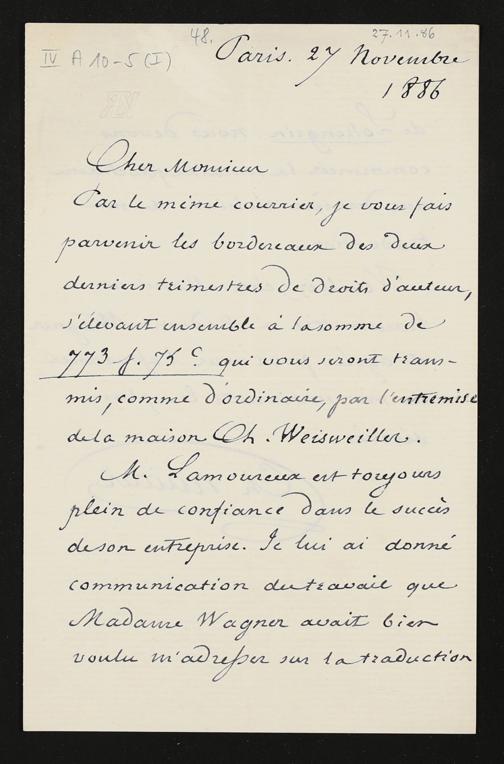 48.
27.11.86
IV A 10-5 (I)
Paris. 27 Novembre
1886
Cher Monsieur
Par le même courrier, je vous fais
parvenir les bordereaux des deux
derniers trimestres de droits d'auteur,
s'élevant ensemble à la somme de
773 f. 75 c. qui vous seront trans-
mis, comme d'ordinaire, par l'entremise
de la maison Ch. Weisweiller.
M. Lamoureux est toujours
plein de confiance dans le succès
de son entreprise. Je lui ai donné
communication du travail que
Madame Wagner avait bien
voulu m'adresser sur la traduction